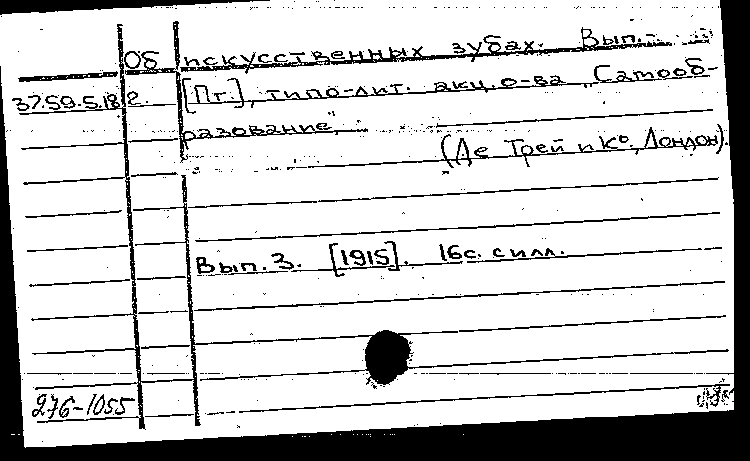 Об искусственных зубах. Вып.-
37.59.5.182. [Пг.], типо-лит. акц. о-ва „Самооб-
разование",
(Де Трей и К°, Лондон).
Вып. 3. [1915]. 16с. с илл.
276-1055